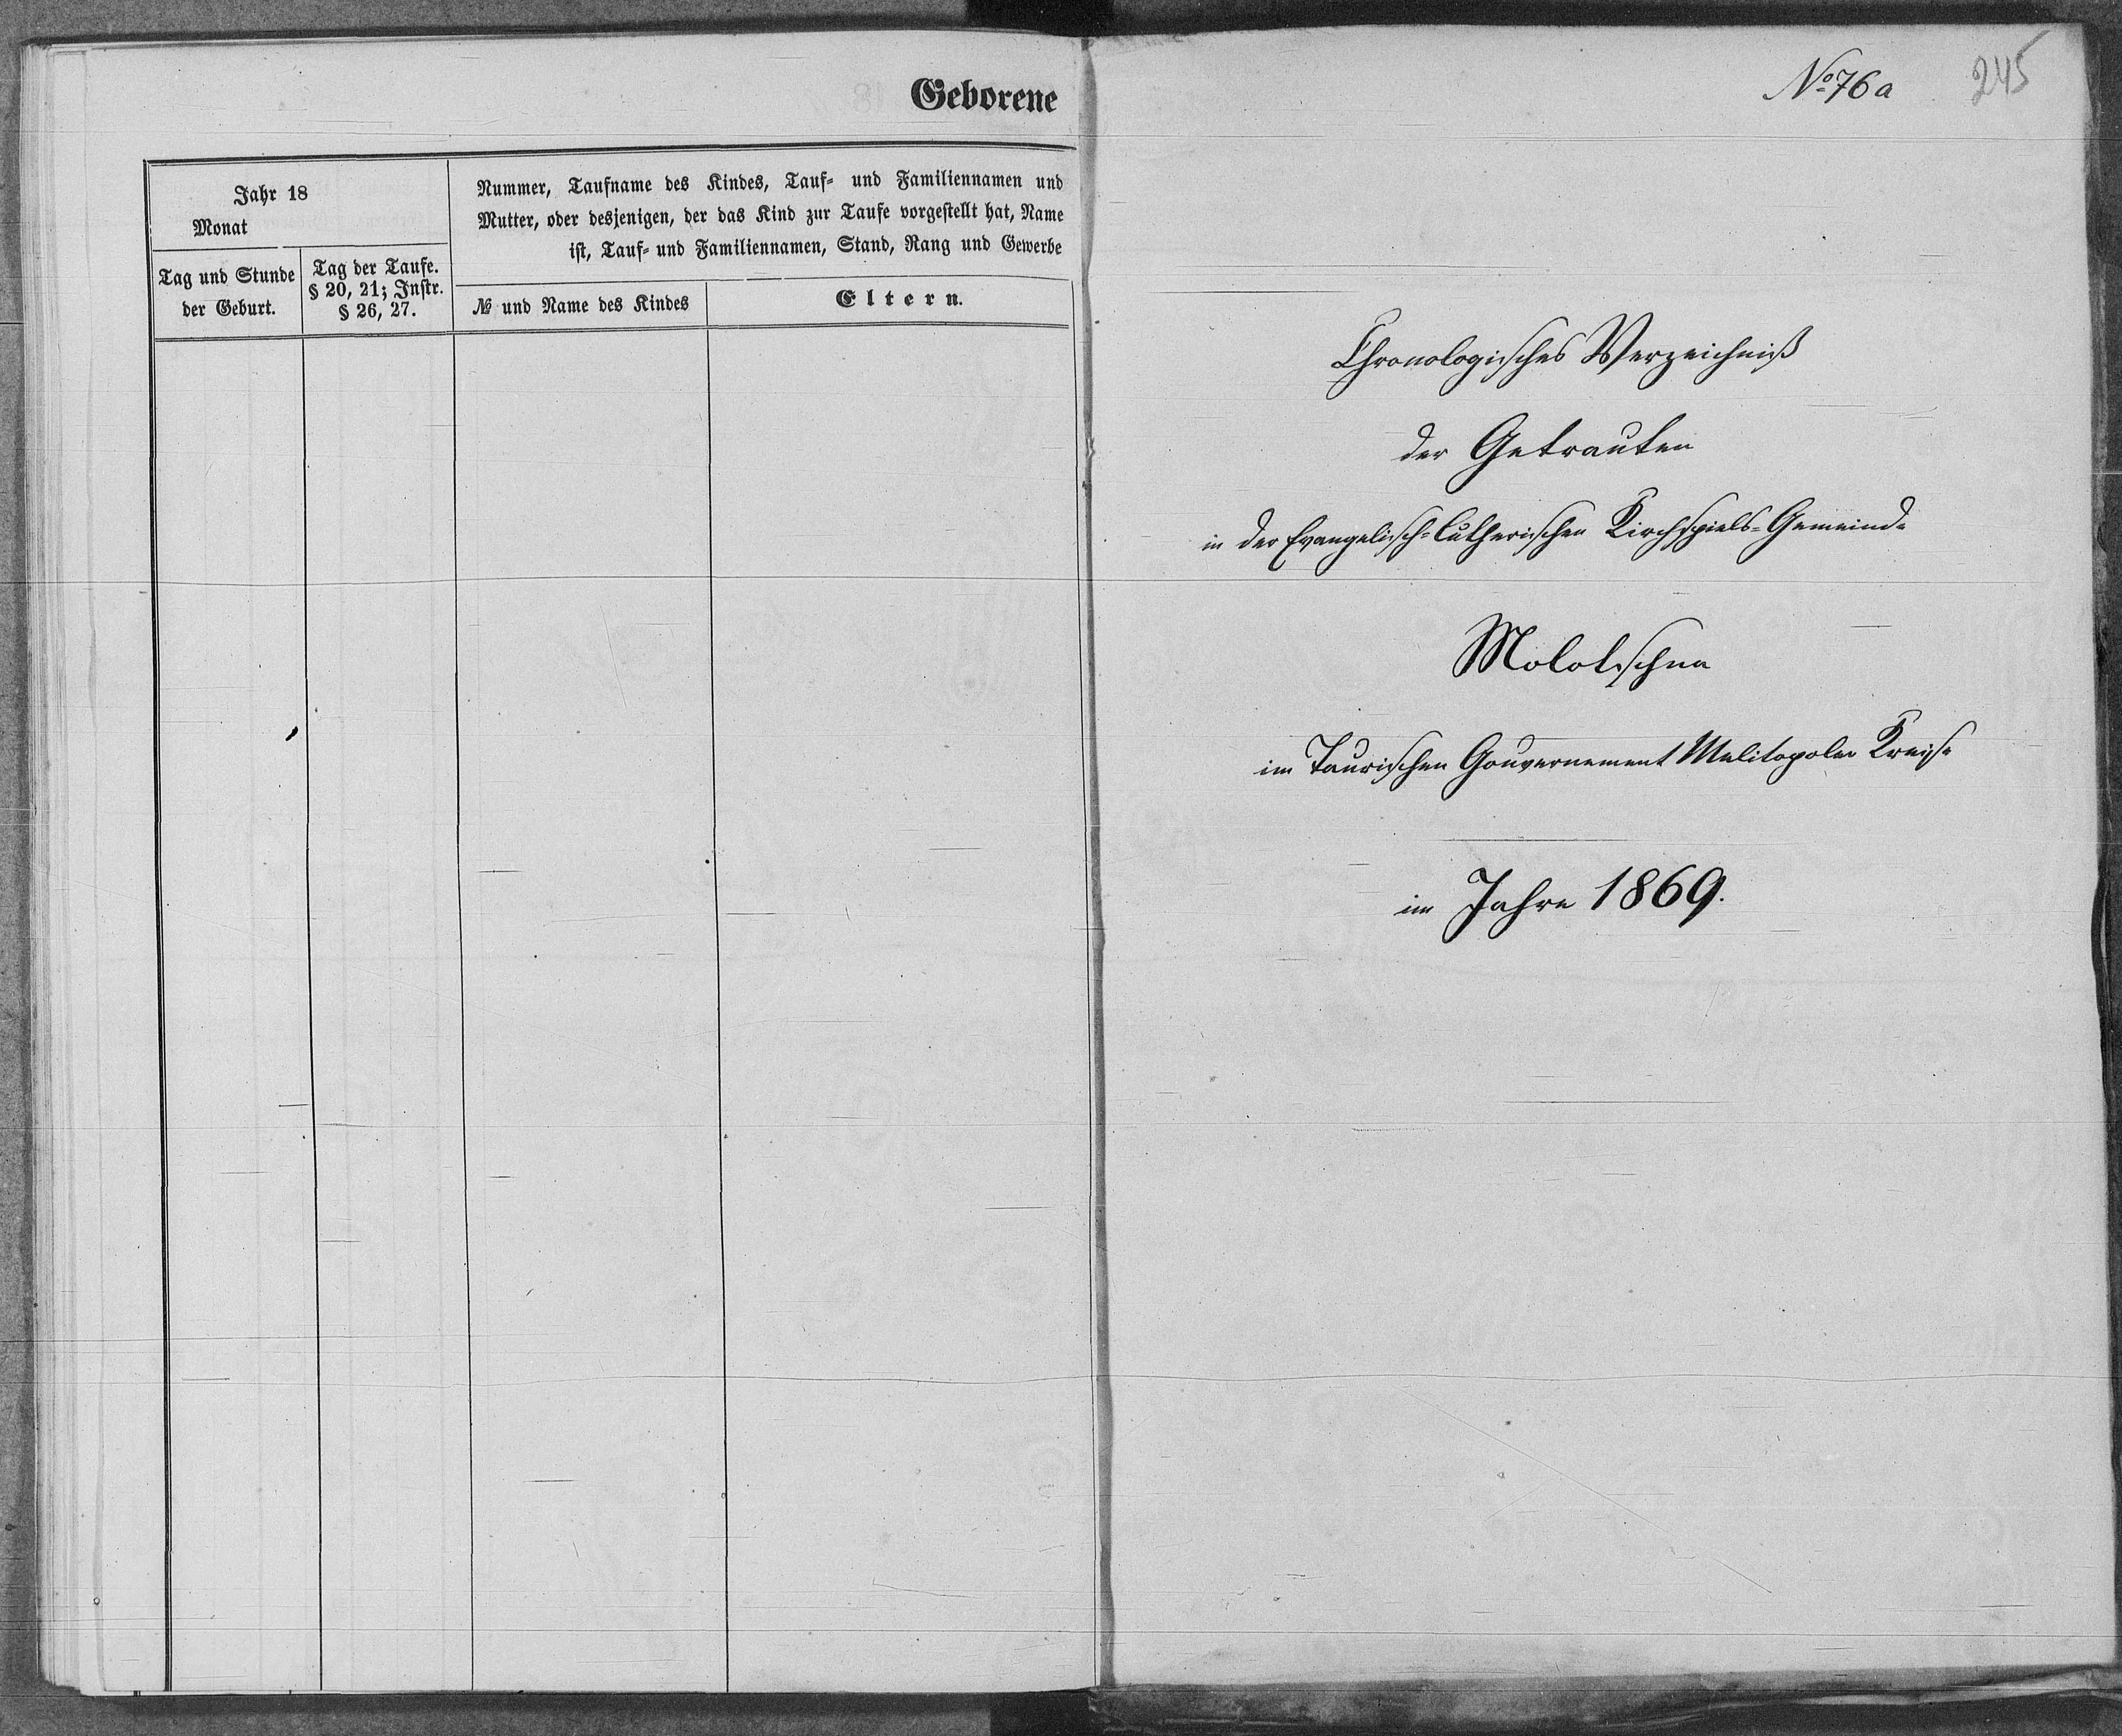 Geborene
Jahr 18
Monat
Tag und Stunde
der Geburt.
Tag der Taufe.
§ 20, 21; Instr.
§ 26, 27.
Nummer, Taufname des Kindes, Tauf- und Familiennamen und
Mutter, oder desjenigen, der das Kind zur Taufe vorgestellt hat, Name
ist, Tauf- und Familiennamen, Stand, Rang und Gewerbe
№ und Name des Kindes
Eltern.
No 76a
245
Chronologisches Verzeichniß
der Getrauten
in der Evangelisch-Lutherischen Kirchspiels-Gemeinde
Molotschna
im Taurischen Gouvernement Melitopoler Kreise
im Jahre 1869.